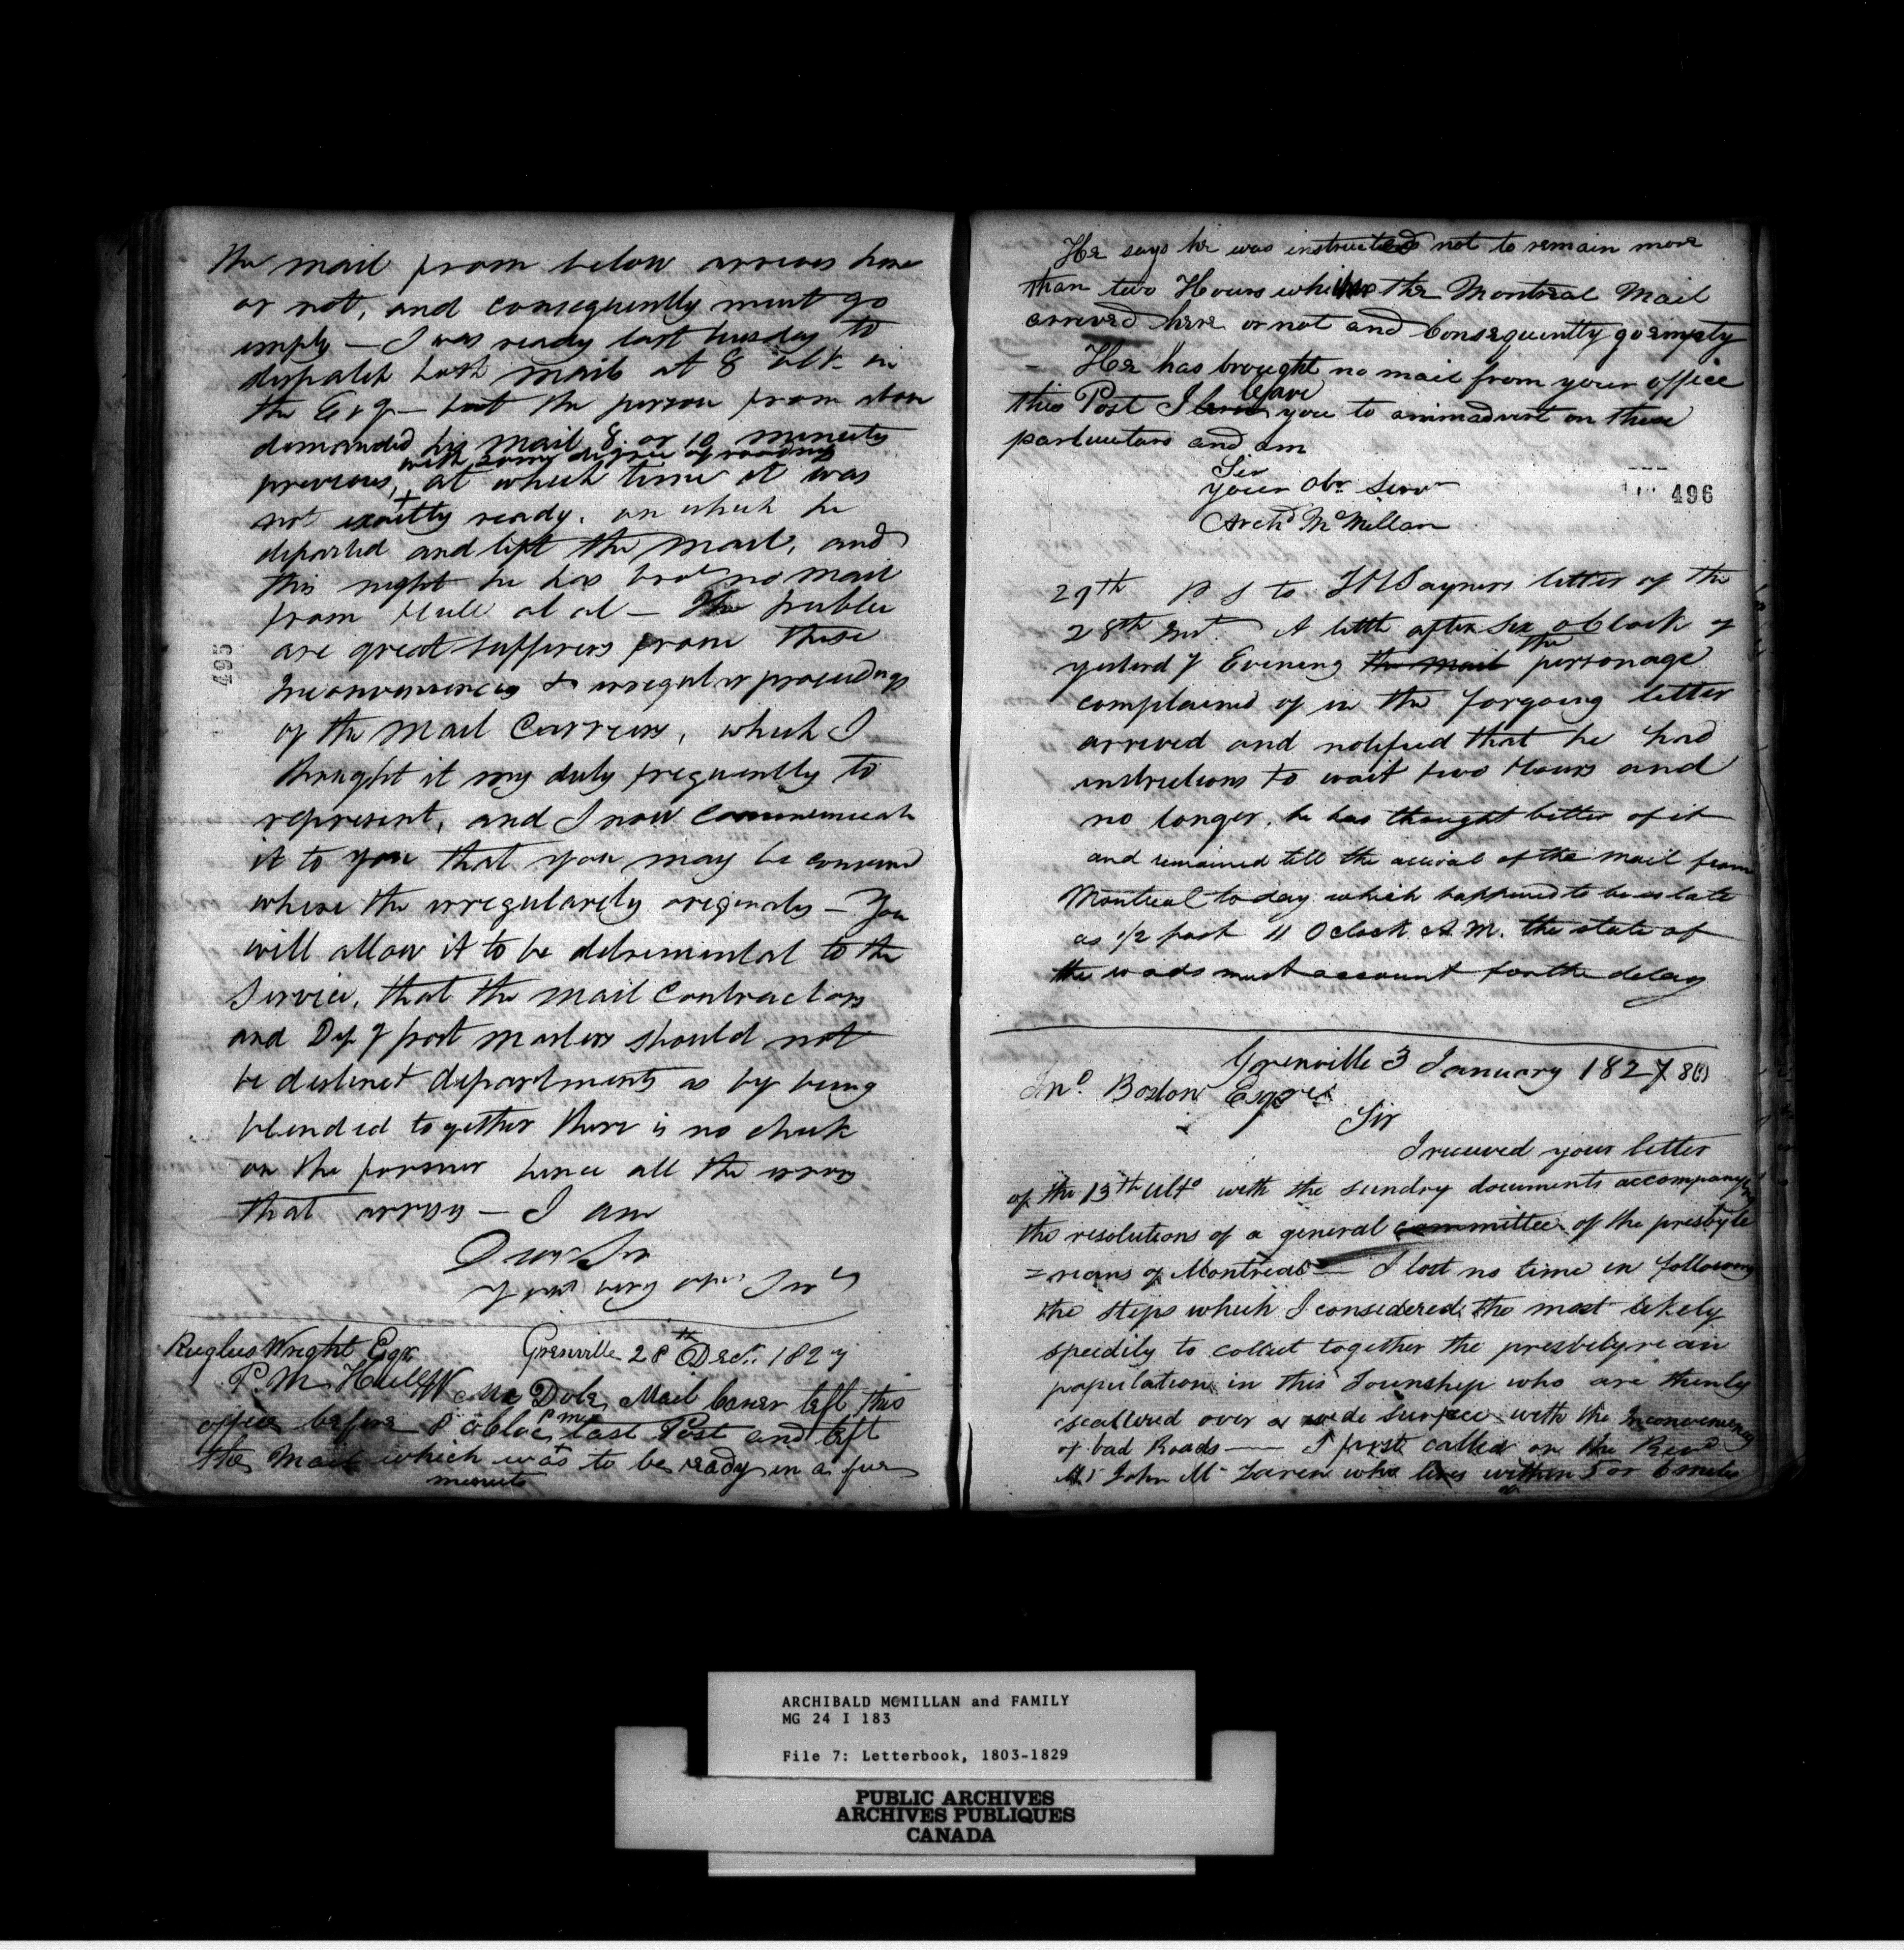 the mail from below arrives here
or not, and consequently must go
empty — I was ready last tuesday to
dispatch both mails at 8 oClk in
the Evg — but the person from above
demanded his mail 8 or 10 minuets
with some degree of
previous, at which time it was
not exactly ready, on which he
departed and left the mail, and
this night he has brot no mail
from Hull at al — The publec
are great sufferers from these
Inconveniencies & irregular proceedings
of the Mail Carriers, which I
thought it my duty frequently to
represent, and I now communicate
it to you that you may be convinced
where the irregularety origenates — You
will allow it to be detremental to the
Service, that the Mail Contractors
and Depy post masters should not
be destinct departments as by being
blended together there is no check
on the former hence all the errors
that arrises — I am
Dear Sir
your very obt Svt
495
Ruglus Wright Esqr
Grenville 28th Decr. 1827
P.M. Hull
Mc Dole, Mail Carrier left this
office before 8 oCloc P M last Post and left
the Mail which was to be ready in a few
minuets
He says he was instructed not to remain more
than two Hours whither the Montreal Mail
arrived here or not and Consequently go empty
— He has brought no mail from your office
this Post I leave you to animadvert on these
particulars and am
Sir
your obt Servt
Archd McMillan
496
29th P S to Sayners letter of the
28th Inst. A little after Six oClock of
yesterdy Evening the mail the personage
complained of in the forgoing letter
arrived and notified that he had
instructions to wait two Hours and
no longer, he has thought better of it
and remained till the arrival of the mail from
Montreal today which happened to be as late
as 1/2 past 11 Oclock A.M. the state of
the roads must account for the delay
Grenville 3 January 1827 8
Jno. Boston Esqre
Sir
I received your letter
of the 13th Ulto with the sundry documents accompanying
the resolutions of a general committee of the presbyte
=rians of Montreal — I lost no time in following
the steps which I considered the most likely
speedily to collect together the presbetyrean
population in this Township who are thinly
scattered over a wide surface with the Inconveniency
of bad Roads — I first called on the Revd
Mr John McLaren who lives within 5 or 6 miles
ARCHIBALD MCMILLAN and FAMILY
MG 24 I 183
File 7: Letterbook, 1803-1829
PUBLIC ARCHIVES
ARCHIVES PUBLIQUES
CANADA